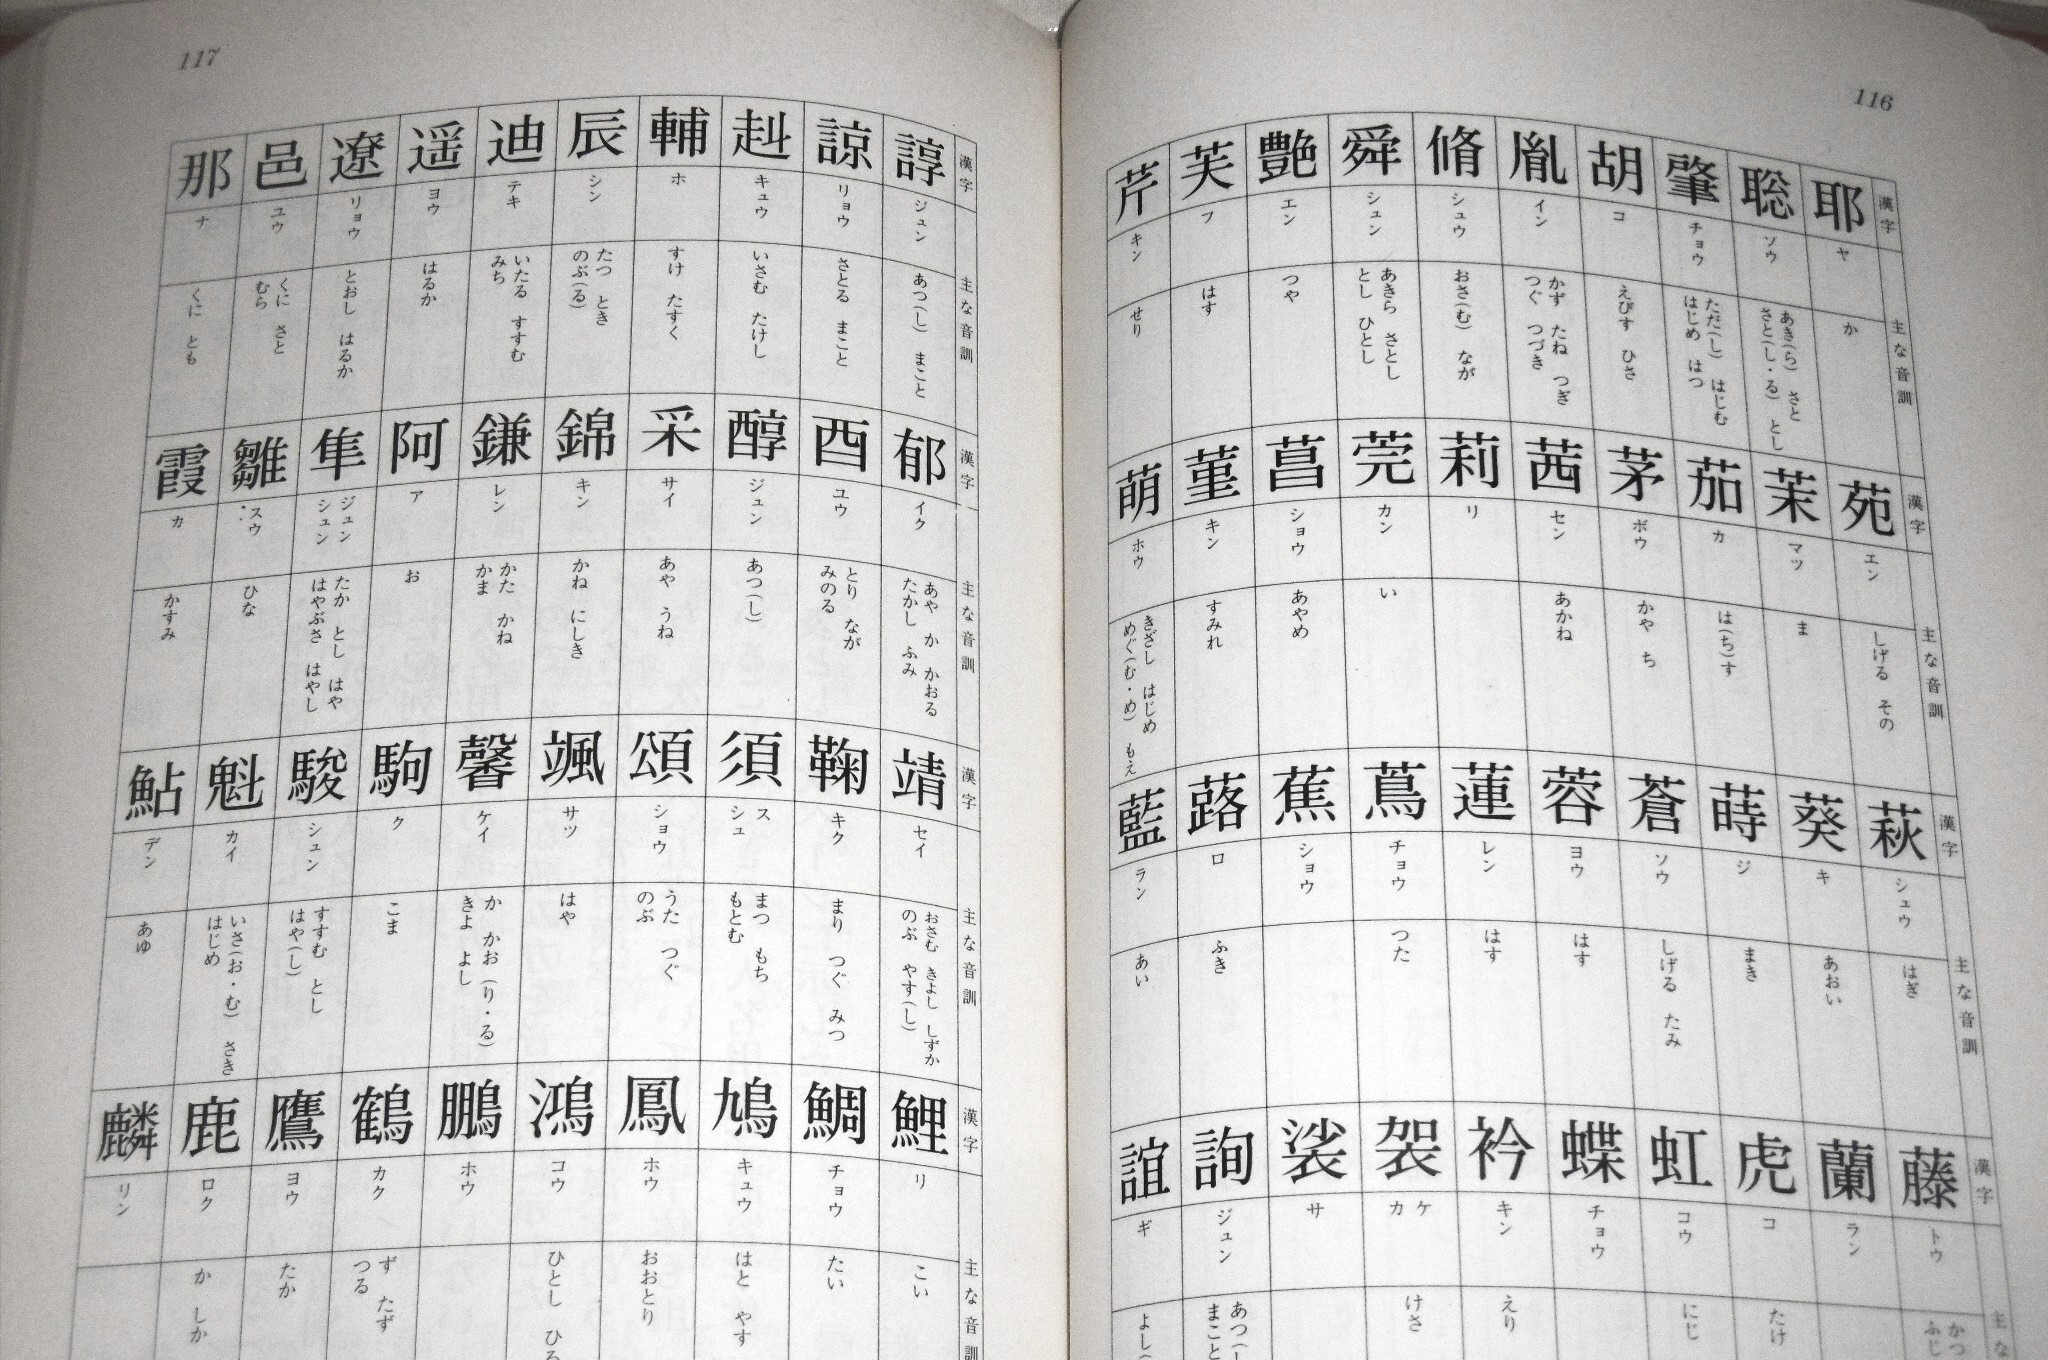 116
漢字 耶 聡 肇 胡 胤 脩 舜 艶 芙 芹
主な音訓 ヤ ソウ チョウ コ イン シュウ シュン エン フ キン
か
あき(ら) さと さと(し・る) とし
ただ(し) はじむ はじめ はつ
えびす ひさ
かず たね つぎ つぐ つづき
おさ(む) なが
あきら さとし とし ひとし
つや
はす
せり
漢字 苑 茉 茄 茅 茜 莉 莞 菖 菫 萌
主な音訓 エン マツ カ ボウ セン リ カン ショウ キン ホウ
しげる その
ま
は(ち)す
かや ち
あかね
い
あやめ
すみれ
きざし はじめ めぐ(む・め) もえ
漢字 萩 葵 蒔 蒼 蓉 蓮 蔦 蕉 蕗 藍
主な音訓 シュウ キ ジ ソウ ヨウ レン チョウ ショウ ロ ラン
はぎ
あおい
まき
しげる たみ
はす
はす
つた
ふき
あい
漢字 藤 蘭 虎 虹 蝶 衿 袈 裟 詢 誼
主な トウ ラン コ コウ チョウ キン ケ カ サ ジュン ギ
かつ ふじ
たけ
にじ
えり
けさ
あつ(し まこと
よし(
117
漢字 諄 諒 赳 輔 辰 迪 遥 遼 邑 那
主な音訓 ジュン リョウ キュウ ホ シン テキ ヨウ リョウ ユウ ナ
あつ(し) まこと
さとる まこと
いさむ たけし
すけ たすく
たつ とき のぶ(る)
いたる すすむ みち
はるか
とおし はるか
くに さと むら
くに とも
漢字 郁 酉 醇 采 錦 鎌 阿 隼 雛 霞
主な音訓 イク ユウ ジュン サイ キン レン ア ジュン シュン スウ カ
あや か かおる たかし ふみ
とり なが みのる
あつ(し)
あや うね
かね にしき
かた かね かま
お
たか とし はや はやぶさ はやし
ひな
かすみ
漢字 靖 鞠 須 頌 颯 馨 駒 駿 魁 鮎
主な音訓 セイ キク ス シュ ショウ サツ ケイ ク シュン カイ デン
おさむ きよし しずか のぶ やす(し)
まり つぐ みつ
まつ もち もとむ
うた つぐ のぶ
はや
か かお(り・る) きよ よし
こま
すすむ とし はや(し)
いさ(お・む) さき はじめ
あゆ
漢字 鯉 鯛 鳩 鳳 鴻 鵬 鶴 鷹 鹿 麟
主な音訓 リ チョウ キュウ ホウ コウ ホウ カク ヨウ ロク リン
こい
たい
はと やす
おおとり
ひとし ひろ
ず たず つる
たか
か しか